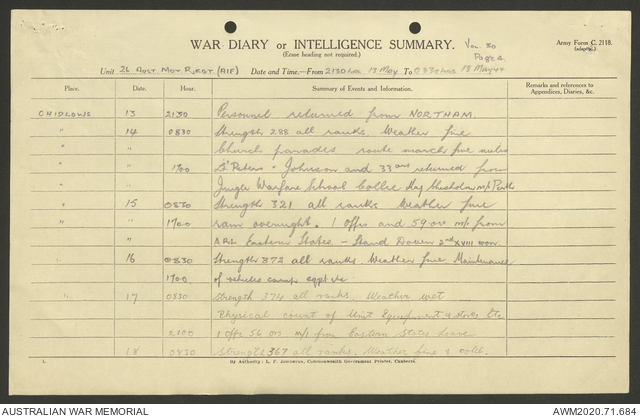 WAR DIARY or INTELLIGENCE SUMMARY.
(Erase heading not required.)
Vol. 30
Page 2
Army Form C. 2118.
(adapted.)
Unit 26 Aust Mov Regt. (AIF) Date and Time—From 2130 hrs 13 May To 0830 hrs 18 May 44
Place. Date. Hour. Summary of Events and Information. Remarks and references to Appendices, Diaries, &c.
CHIDLOWS 13 2130 Personnel returned from NORTHAM.
" 14 0830 Strength 288 all ranks. Weather fine
" Church parades route march five miles
" 1700 Lt Peters & Johnson and 33 ors returned from
" Jungle Warfare School Collie Maj Chisholm m/o Perth
" 15 0830 Strength 321 all ranks Weather fine
" 1700 rain overnight. 1 offr and 59 ors m/i from
" Eastern States - Stand Down 2nd XVIII won
" 16 0830 Strength 372 all ranks. Weather fine Maintenance
1700 of vehicles camp eqpt etc
" 17 0830 Strength 374 all ranks. Weather wet
Physical count of Unit Equipment & stores etc
2100 1 offr 56 ors m/i from Eastern States Leave
18 0830 Strength 367 all ranks. Weather fine & cold.
1. By Authority: L. F. Johnston, Commonwealth Government Printer, Canberra.
AUSTRALIAN WAR MEMORIAL
AWM2020.71.684